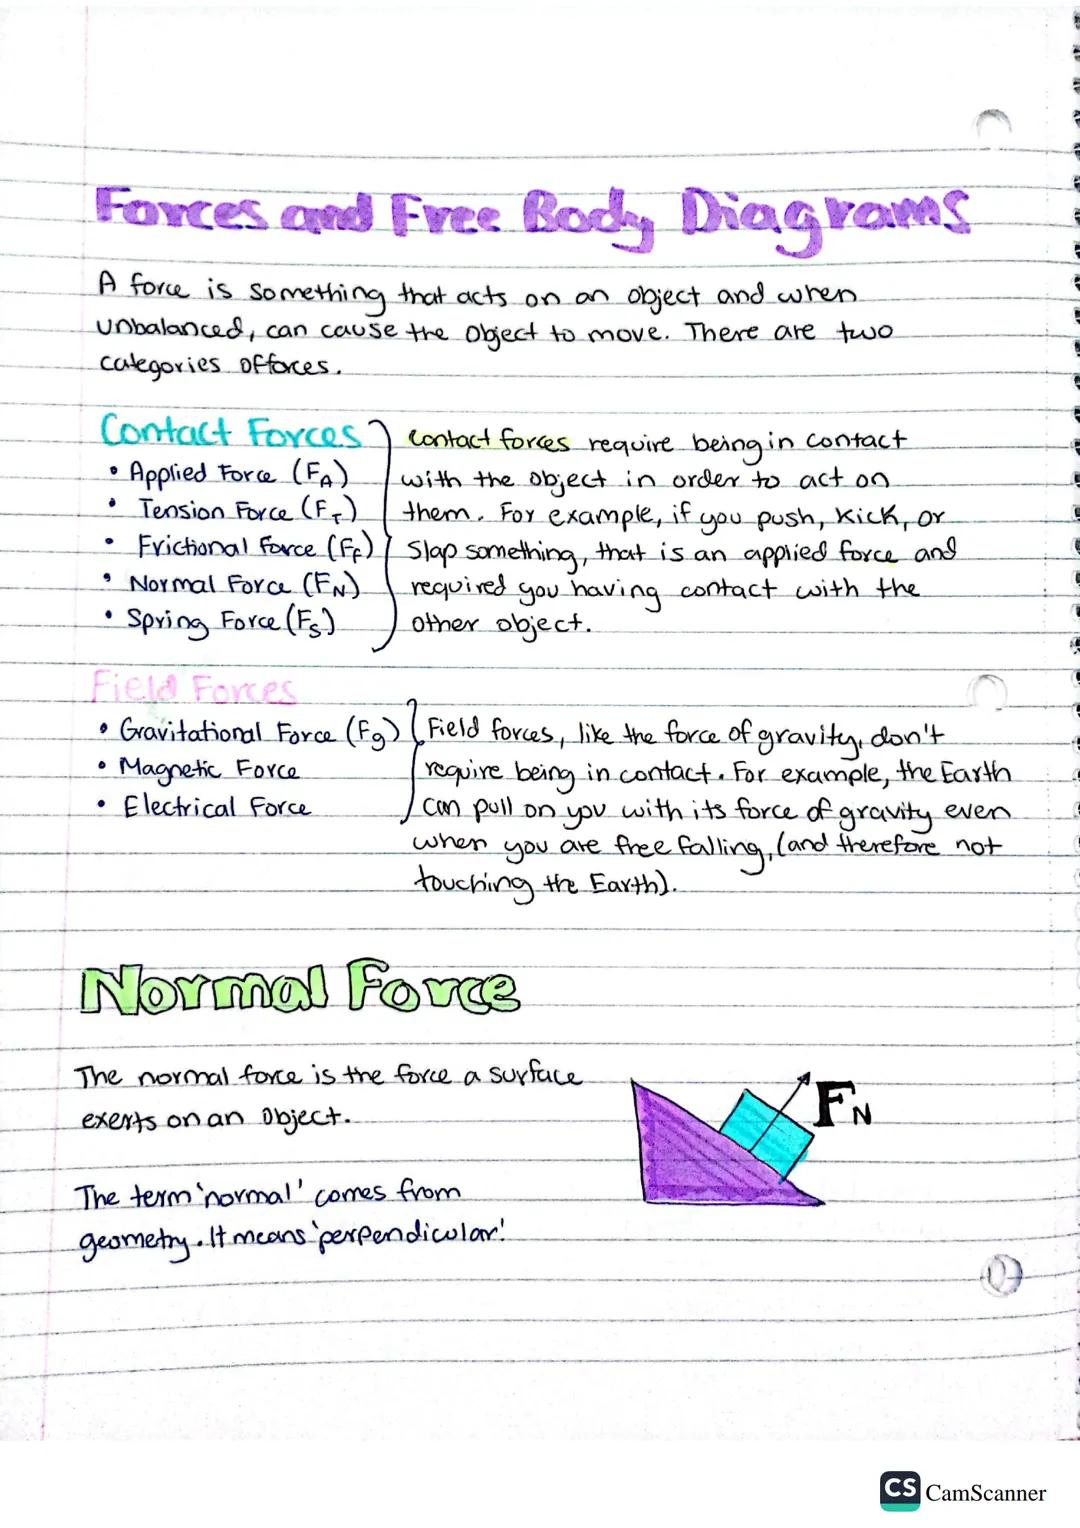 Forces and Free Body Diagrams
A force is something that acts on an object and when
unbalanced, can cause the object to move. There are two
categories of forces.
Contact Forces
• Applied Force (FA)
• Tension Force (FT)
• Frictional Force (FF)
• Normal Force (FN)
• Spring Force (FS)
Contact forces require being in contact
with the object in order to act on
them. For example, if you push, kick, or
slap something, that is an applied force and
required you having contact with the
other object.
Field Forces
• Gravitational Force (Fg)
• Magnetic Force
• Electrical Force
Field forces, like the force of gravity, don't
require being in contact. For example, the Earth
can pull on you with its force of gravity even
when you are free falling, (and therefore not
touching the Earth).
Normal Force
The normal force is the force a surface
exerts on an object.
The term 'normal' comes from
geometry. It means 'perpendicular'.
FN
CS CamScanner